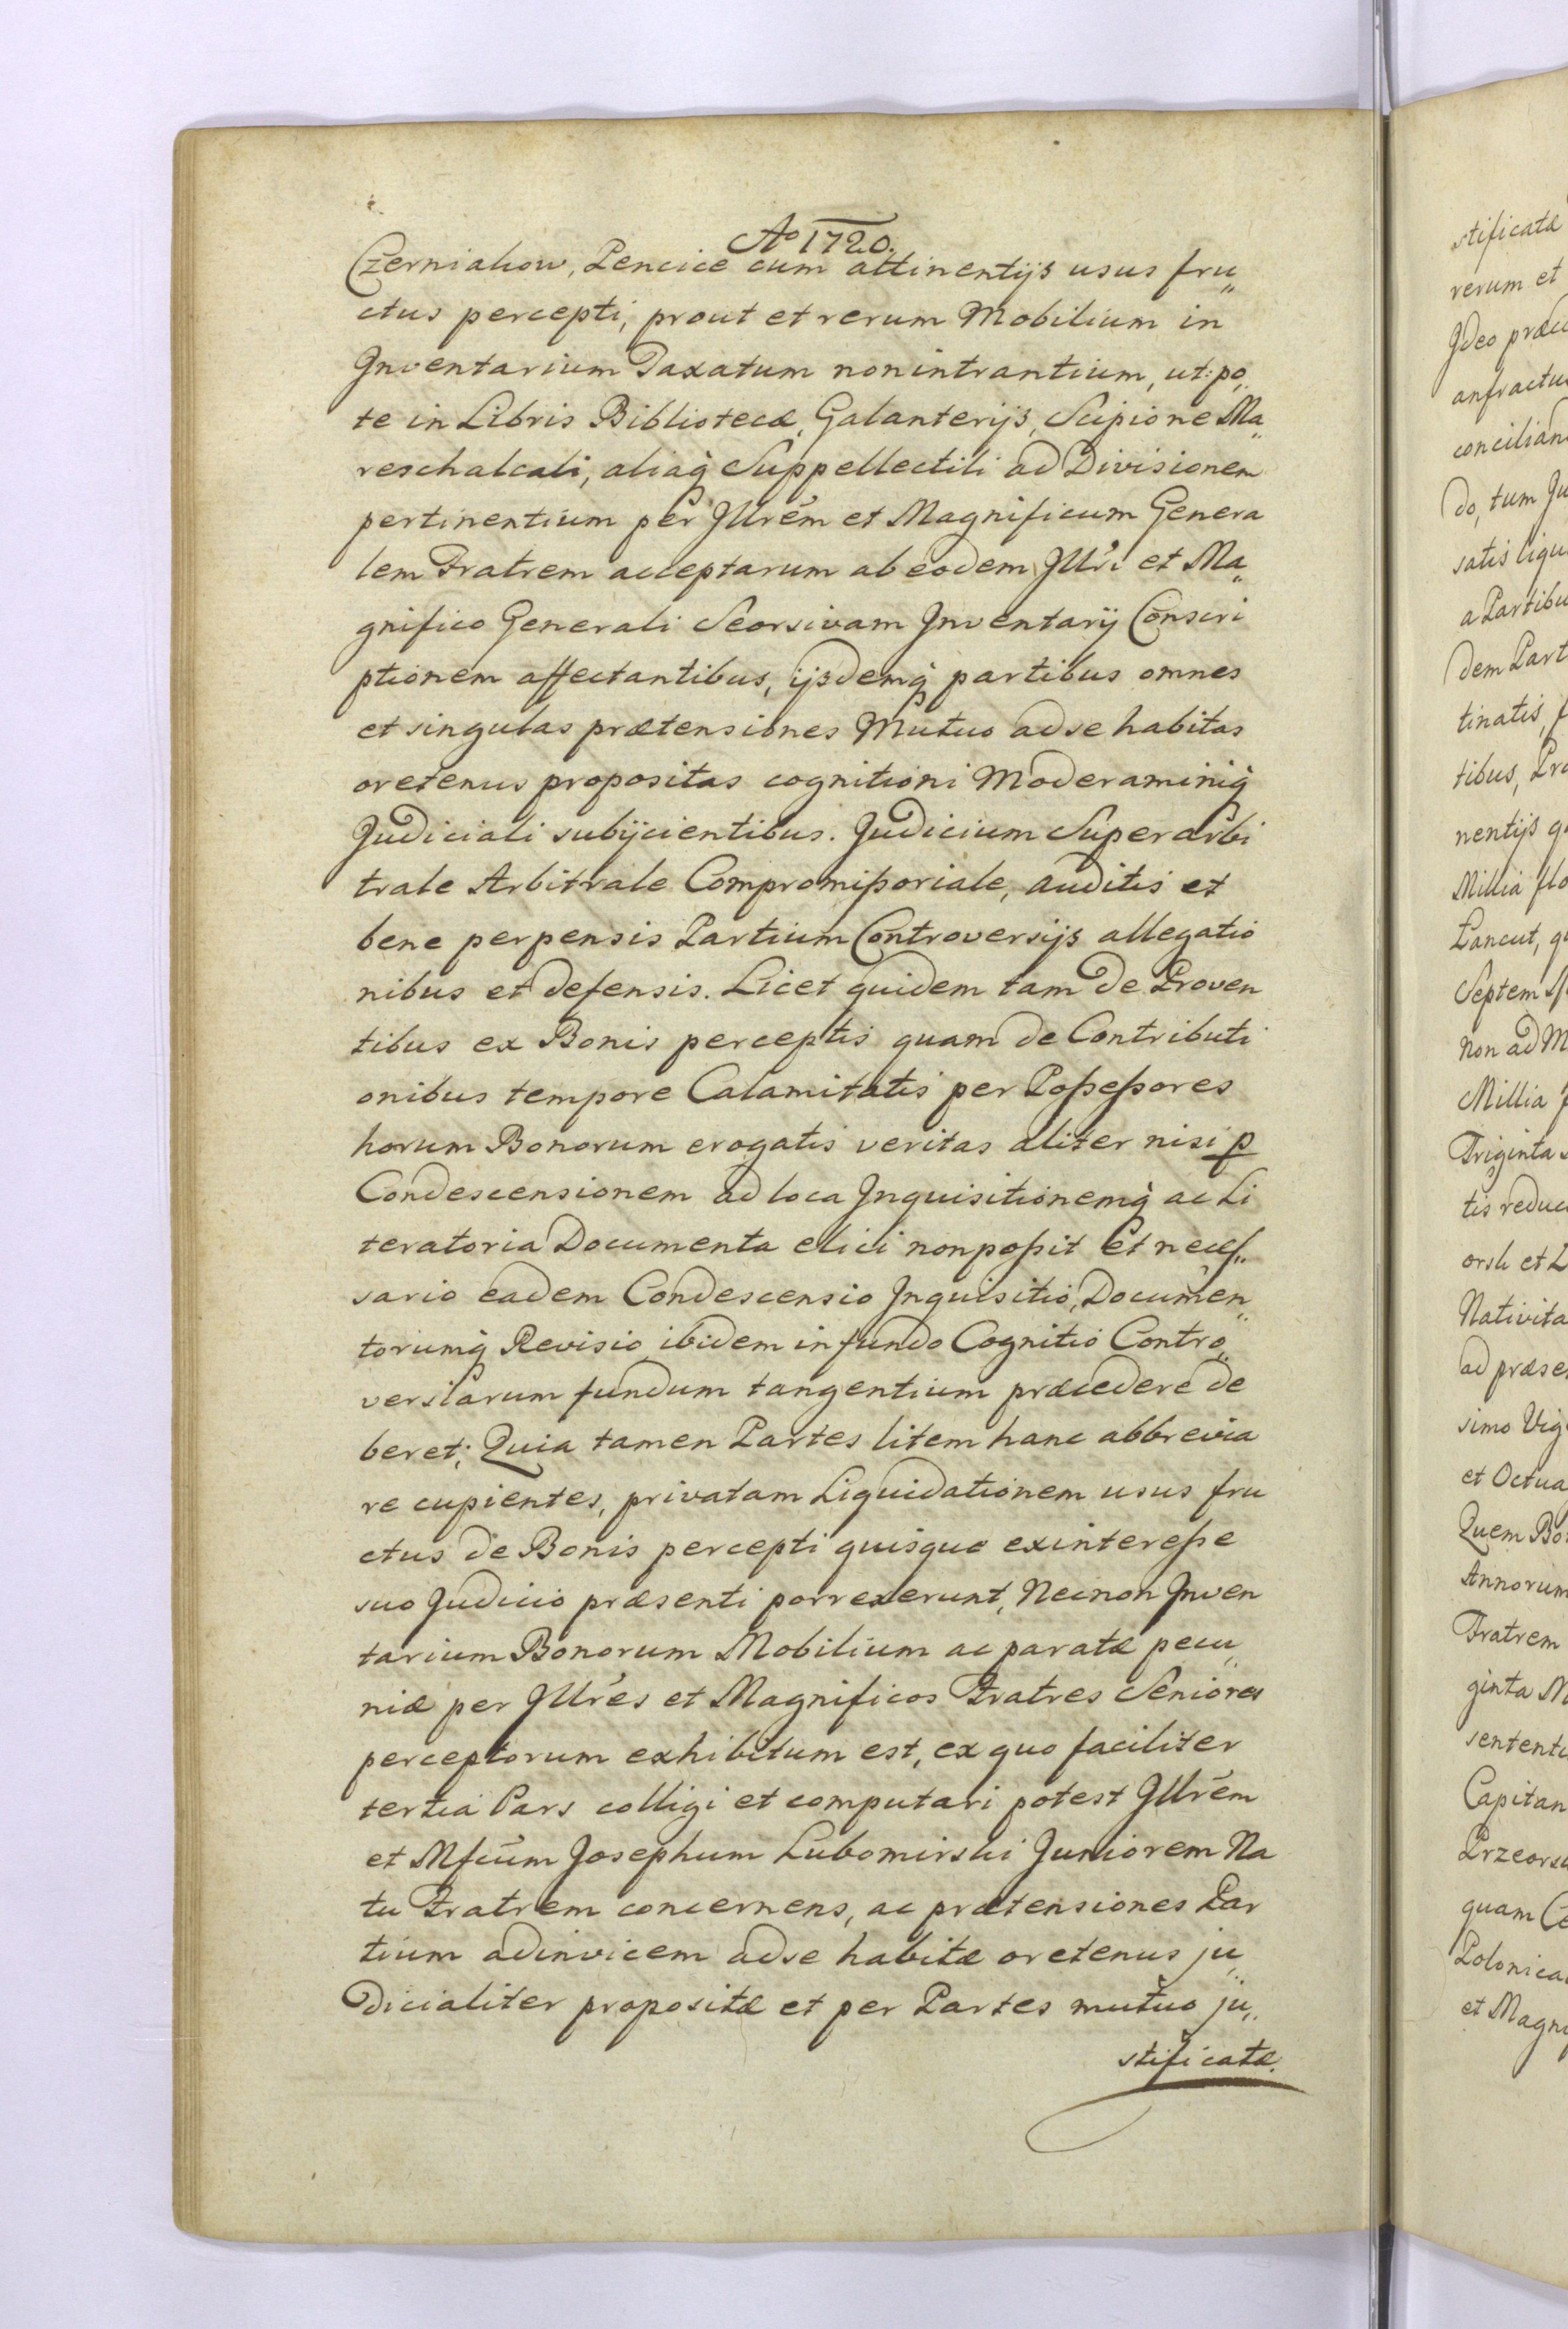 Ao 1720.
Czerniakow, Pencice cum attinentijs usus fru„
ctus percepti, prout et rerum Mobilium in
Inventarium Taxatum non intrantium, ut:po„
te in Libris Bibliotecæ, Galanterijs, Scipione Ma„
reschalcali, aliaq̀ Suppellectili ad Divisionem
pertinentium per Illrem et Magnificum Genera
lem Fratrem acceptarum ab eodem Illri et Ma„
gnifico Generali Seorsivam Inventarij Conscri
ptionem affectantibus, ijsdemq̀ partibus omnes
et singulas prætensiones Mutuo ad se habitas
oretenus propositas cognitioni Moderaminiq̀
Judiciali subijcientibus. Judicium Superarbi
trale Arbitrale Compromißoriale, auditis et
bene perpensis Partium Controversijs allegatio
nibus et defensis. Licet quidem tam de Proven
tibus ex Bonis perceptis quam de Contributi
onibus tempore Calamitatis per Poßeßores
horum Bonorum erogatis veritas aliter nisi p
Condescensionem ad loca Inquisitionemq̀ ac Li
teratoria Documenta elici non poßit et neces„
sario eadem Condescensio Inquisitio, Documen„
torumq̀ Revisio ibidem in fundo Cognitio Contro„
versiarum fundum tangentium præcedere de
beret; Quia tamen Partes litem hanc abbrevia
re cupientes, privatam Liquidationem usus fru
ctus de Bonis percepti quisque ex intereße
suo Judicio præsenti porrexerunt, Necnon Inven
tarium Bonorum Mobilium ac paratæ pecu„
niæ per Illres et Magnificos Fratres Seniores
perceptorum exhibitum est, ex quo faciliter
tertia Pars colligi et computari potest Illrem
et Mficum Josephum Lubomirski Juniorem Na
tu Fratrem concernens, ac prætensiones Par
tium adinvicem ad se habitæ oretenus ju„
dicialiter propositæ et per Partes mutuo ju„
stificatæ.
stificatæ
rerum et
Ideo
anfractu
do, tum
satis
a Partibu
dem Part
tinatis,
tibus,
nentijs
Millia flo
Lancut,
Septem
non ad M
Millia
Triginta
tis
orsk et
Nativita
ad præse
simo Vig
et Octua
Quem Bo
Annorum
Fratrem
ginta
sententi
Capitan
Przeors
quam
Polonica
et Magni